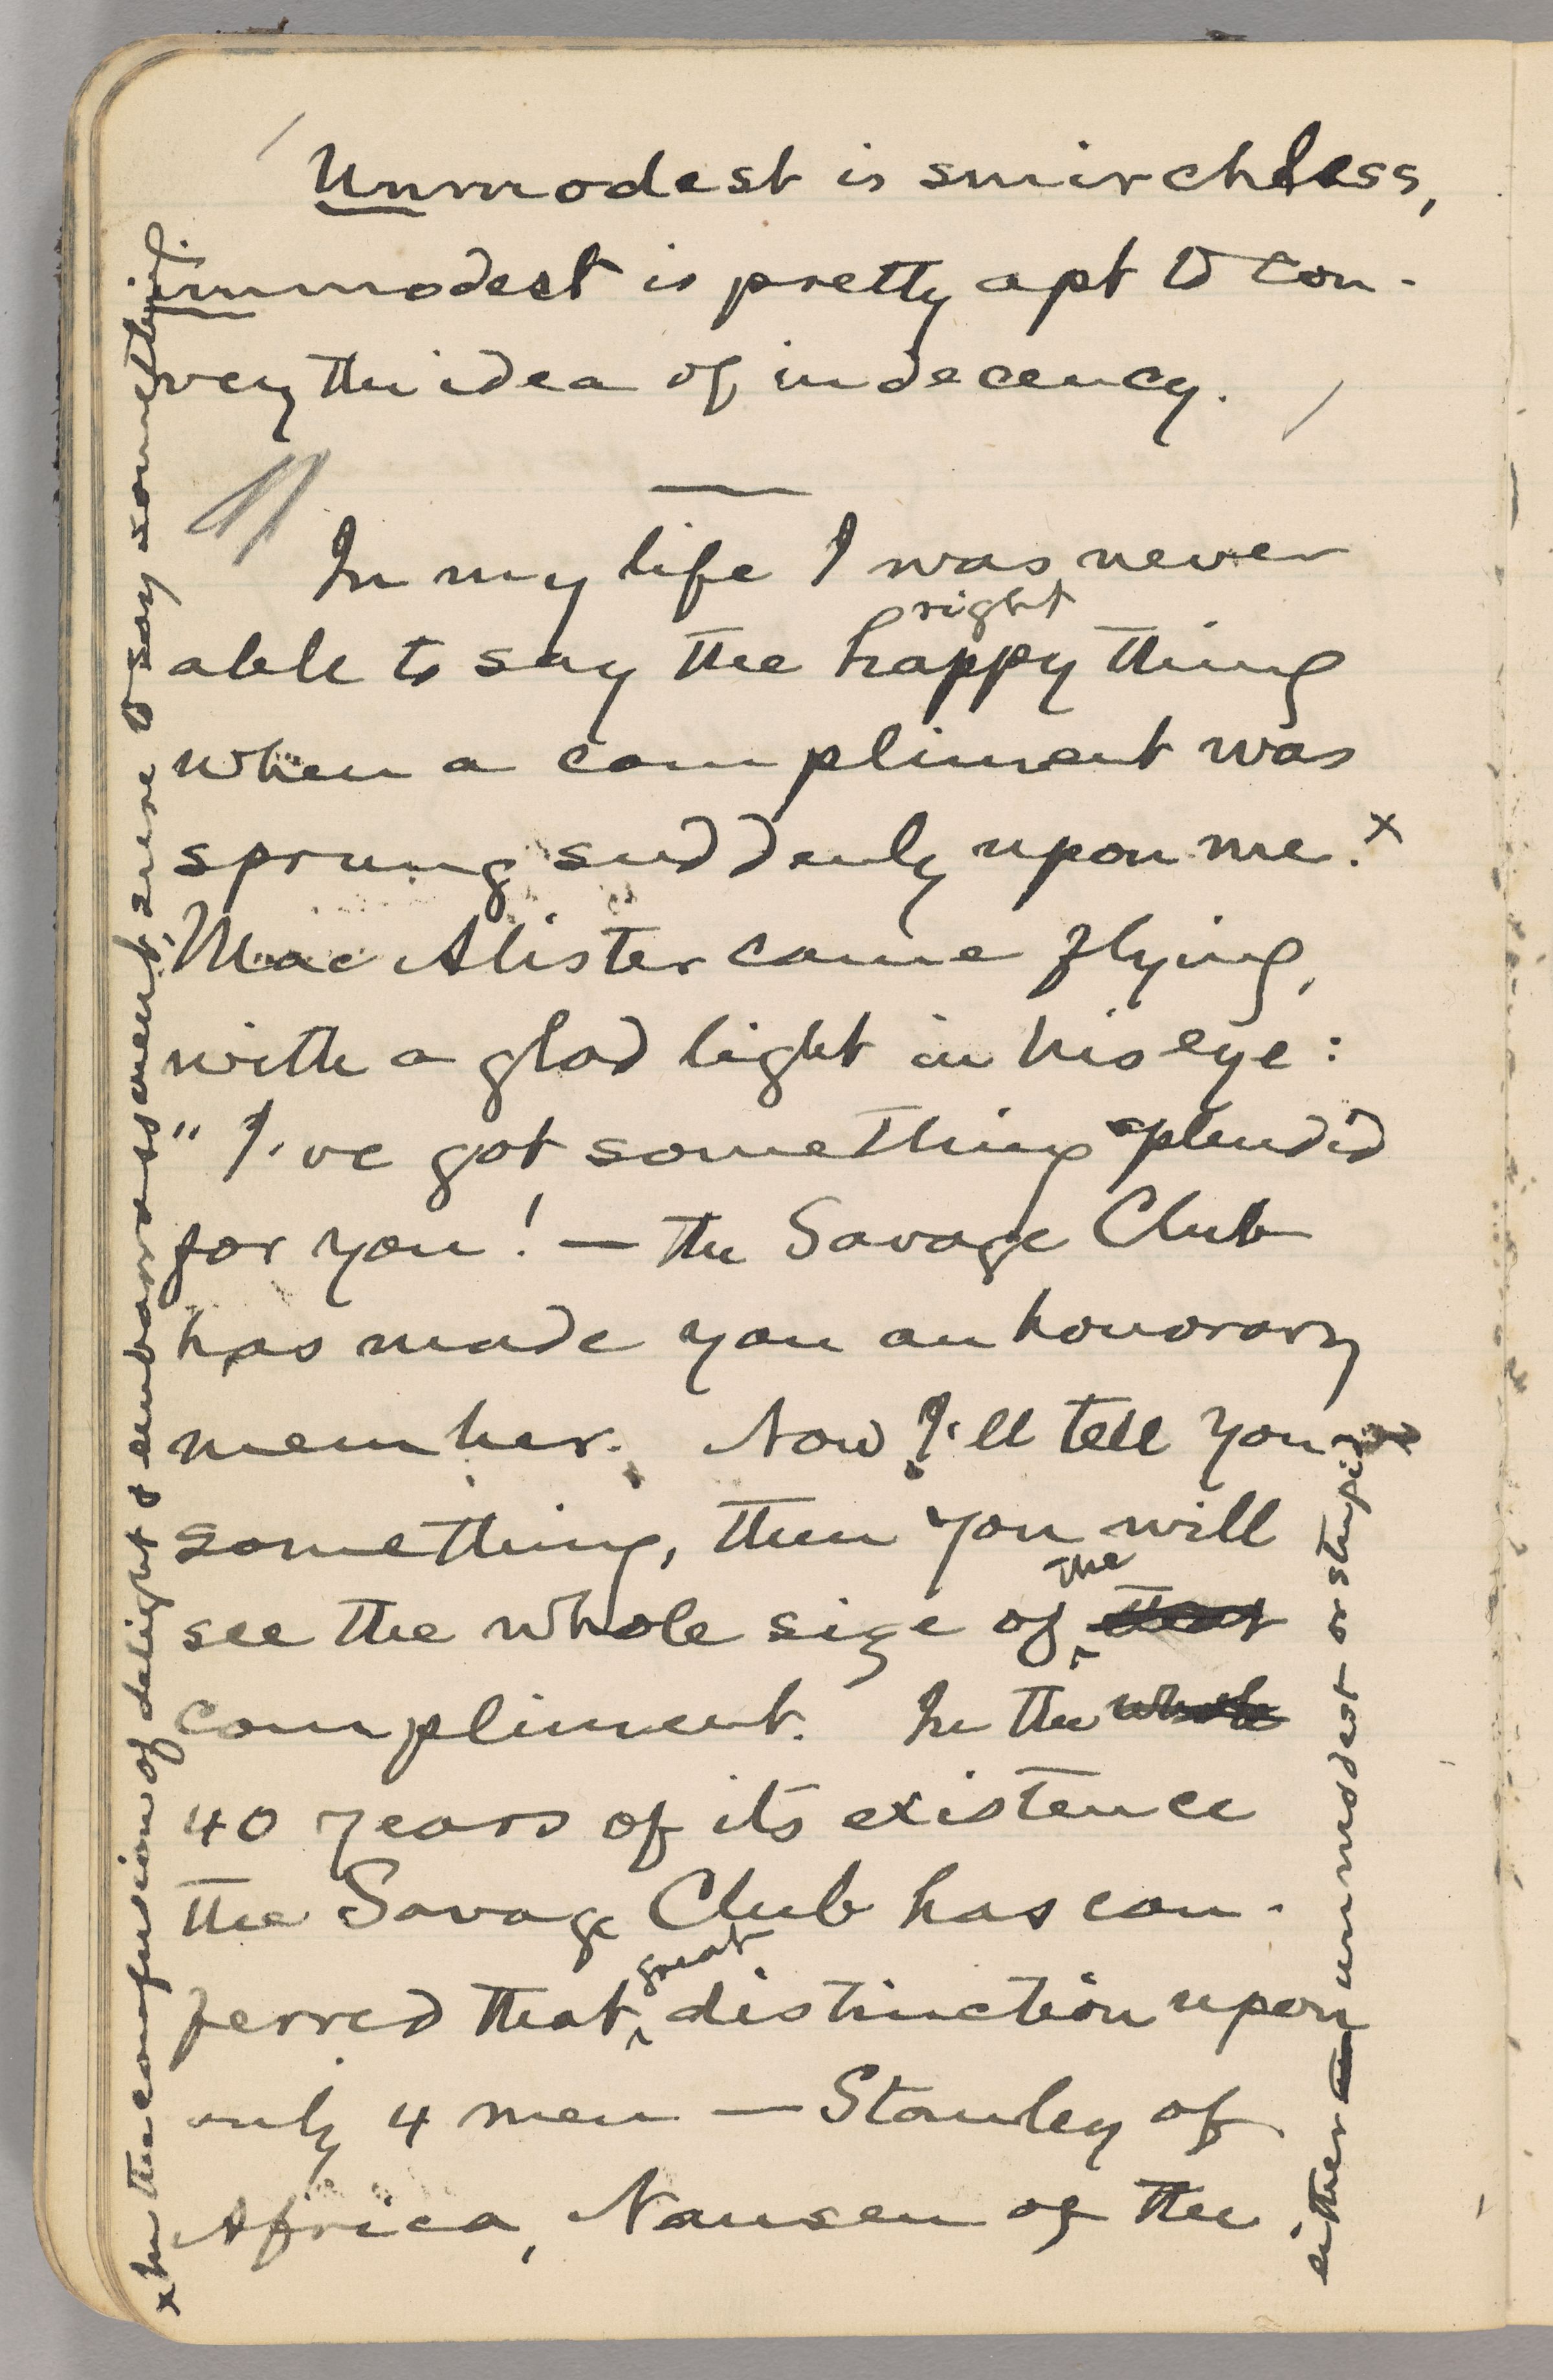 Unmodest is smirchless,
immodest is pretty apt to con-
vey the idea of indecency.
In my life I was never
right
able to say the happy thing
when a compliment was
sprung suddenly upon me.x
MacAlister came flying,
with a glad light in his eye:
"I've got something splendid
for you! — the Savage Club
has made you an honorary
member. Now I'll tell you
something, then you will
the
see the whole size of ^ that
compliment. In the whole
40 years of its existence
the Savage Club has con-
great
ferred that ^ distinction upon
only 4 men — Stanley of
Africa, Nansen of the
x In the confusion of delight & embarrassment, I rise to say something
either unmodest or stupid